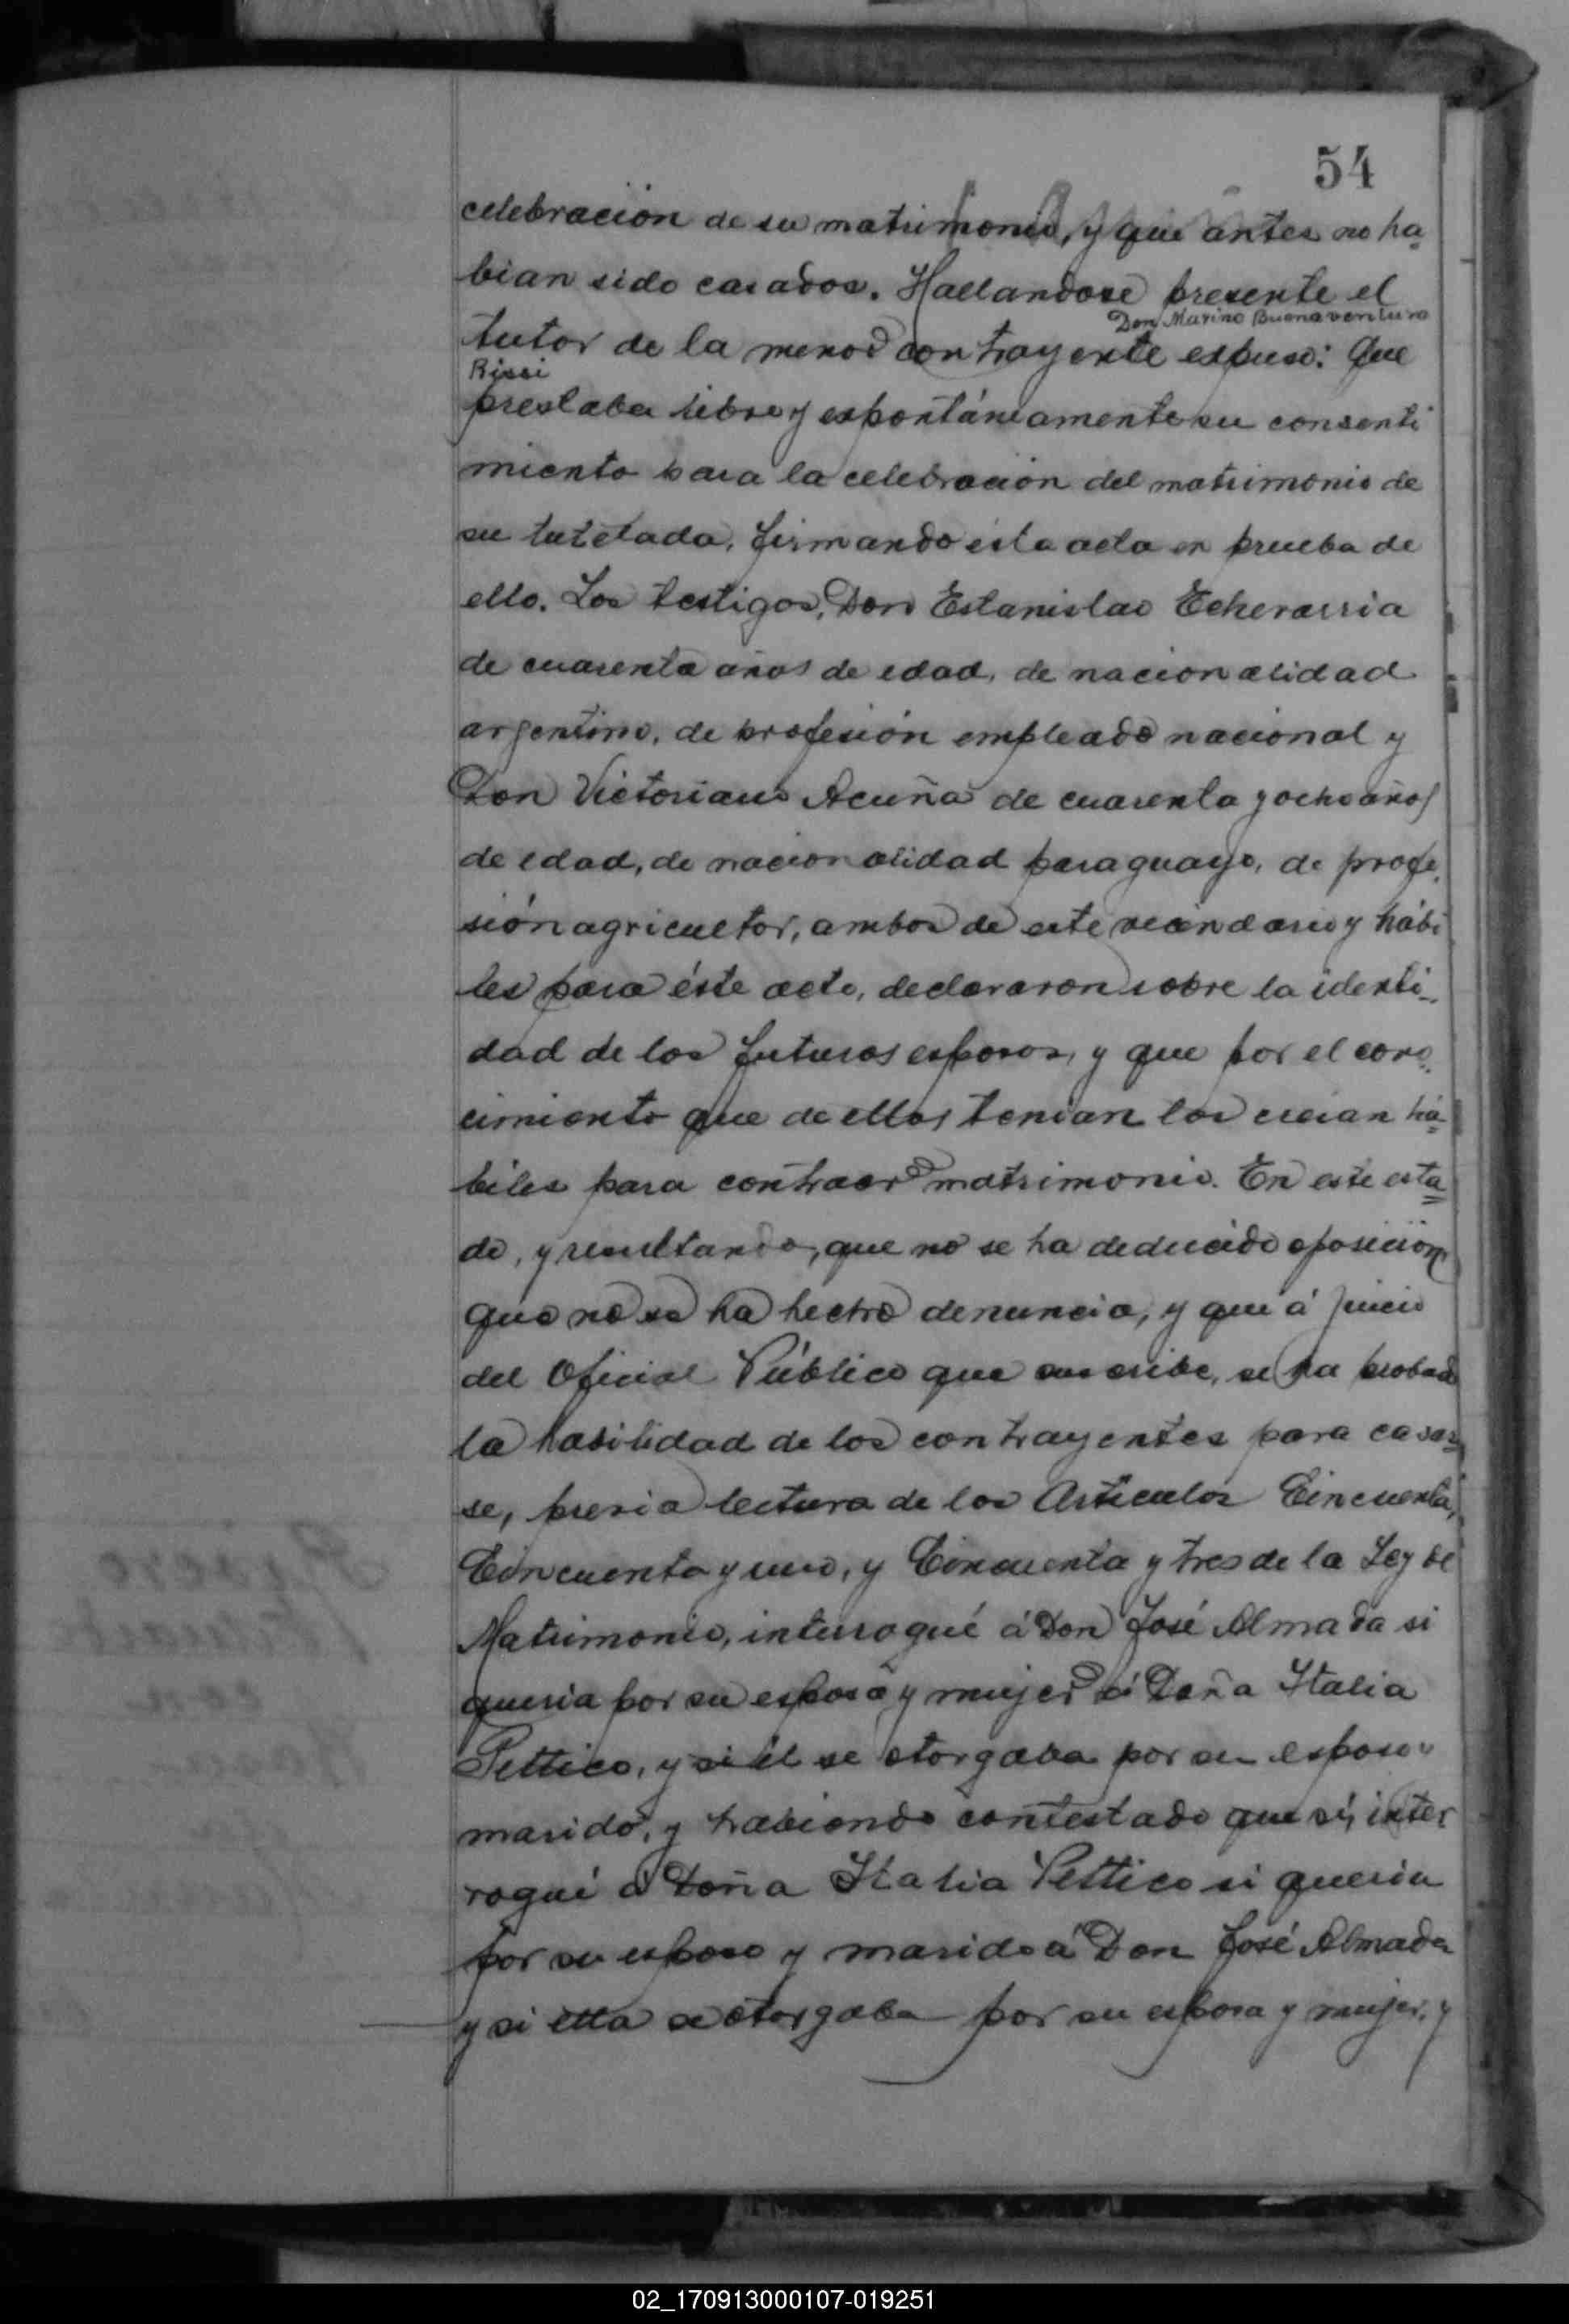 54
celebración de su matrimonio, y que antes no ha
bian sido casados. Hallandose presente el
Don Marino Buenaventura
tutor de la menor contrayente expuso: Que
Rissi
prestaba libre y espontáneamente su consenti
miento para la celebración del matrimonio de
su tutelada, firmando ésta acta en prueba de
ello. Los testigos, Don Estanislao Echevarria
de cuarenta años de edad, de nacionalidad
argentino, de profesión empleado nacional y
Don Victoriano Acuña de cuarenta y ocho años
de edad, de nacionalidad paraguayo, de profe
sión agricultor, ambos de este vecindario y hábi
les para éste acto, declararon sobre la identi-
dad de los futuros esposos, y que por el cono
cimiento que de ellos tenian los creian há-
biles para contraer matrimonio. En este esta
do, y resultando, que no se ha deducido oposición,
que no se ha hecho denuncia, y que á juicio
del Oficial Público que suscribe, se ha probado
la habilidad de los contrayentes para casar
se, previa lectura de los Articulos Cincuenta,
Cincuenta y uno, y Cincuenta y tres de la Ley de
Matrimonio, interrogué á Don José Almada si
queria por su esposa y mujer á Doña Italia
Pettico, y si él se otorgaba por su esposo y
marido, y habiendo contestado que sí, inter
rogué á Doña Italia Pettico si queria
por su esposo y marido á Don José Almada
y si ella se otorgaba por su esposa y mujer, y
02_170913000107-019251